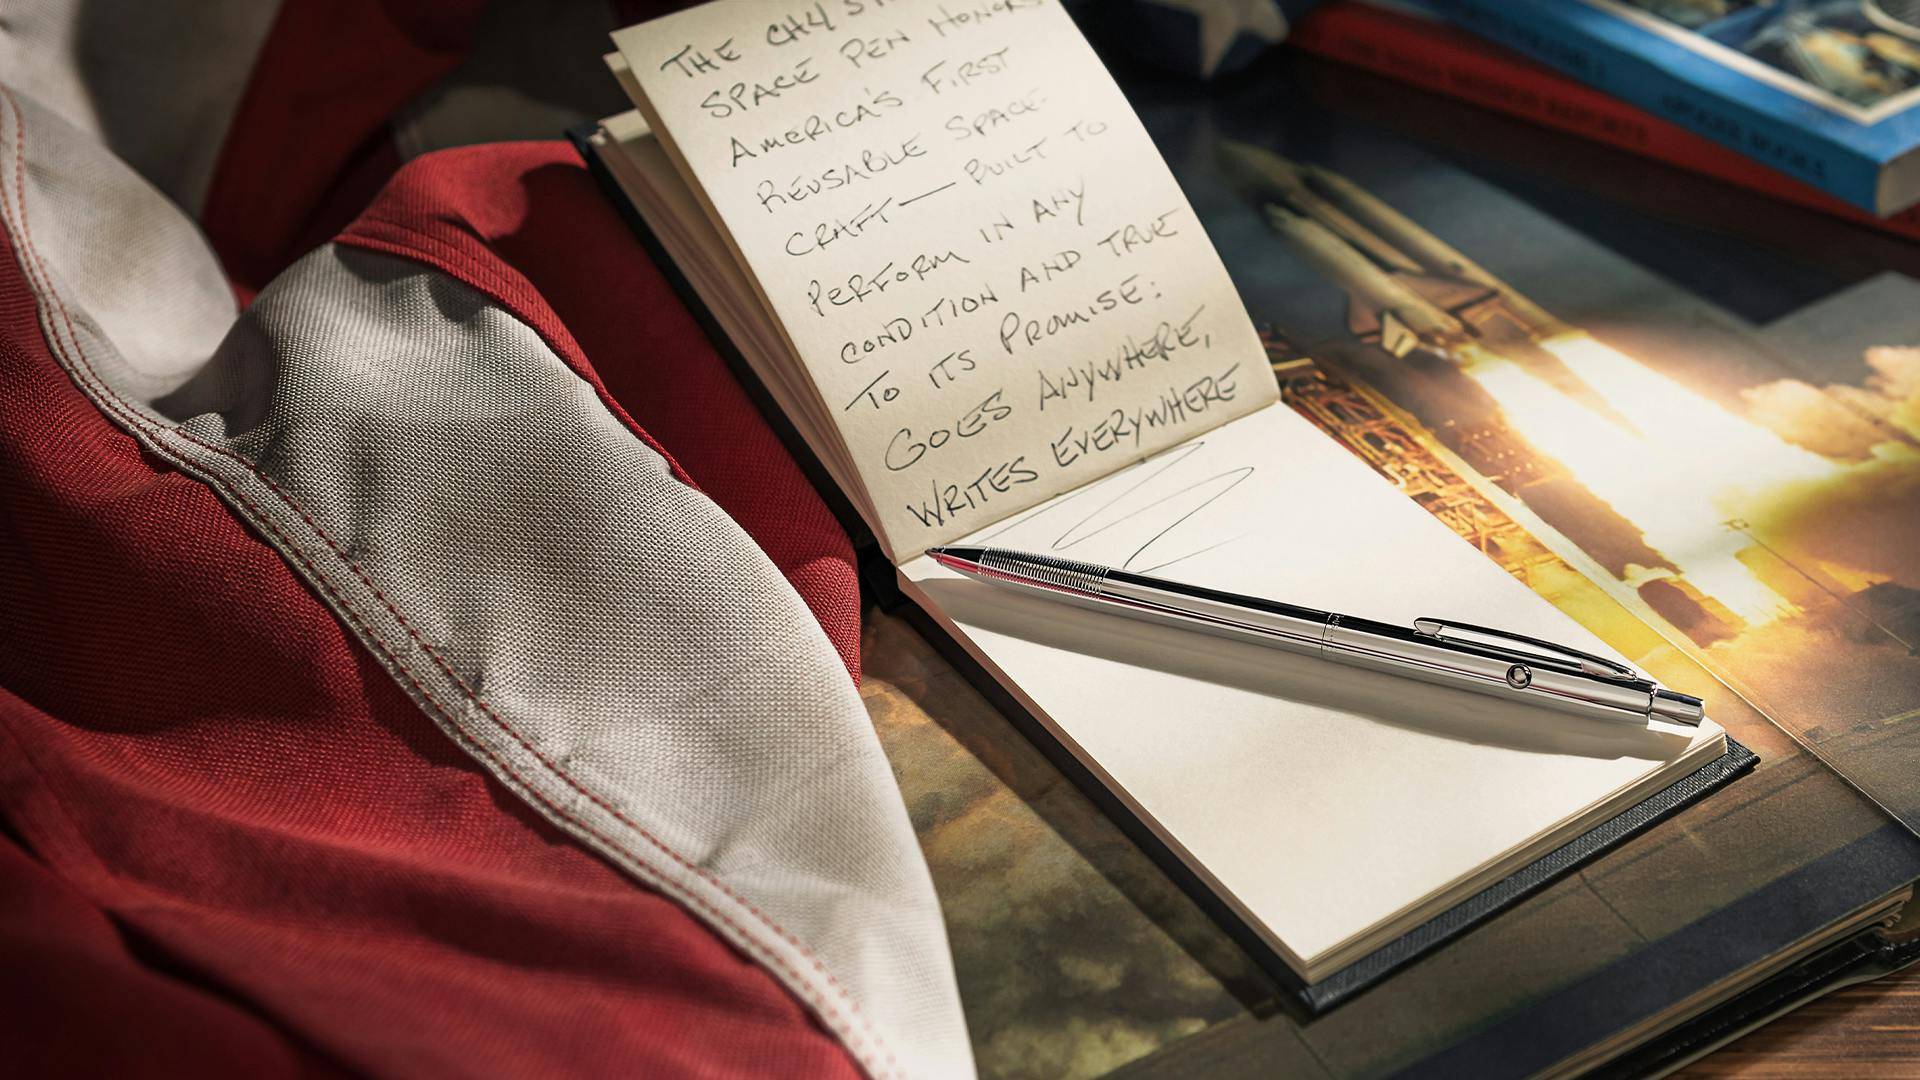 THE CH4
SPACE PEN HONORS
AMERICA'S FIRST
REUSABLE SPACE-
CRAFT — BUILT TO
PERFORM IN ANY
CONDITION AND TRUE
TO ITS PROMISE:
GOES ANYWHERE,
WRITES EVERYWHERE